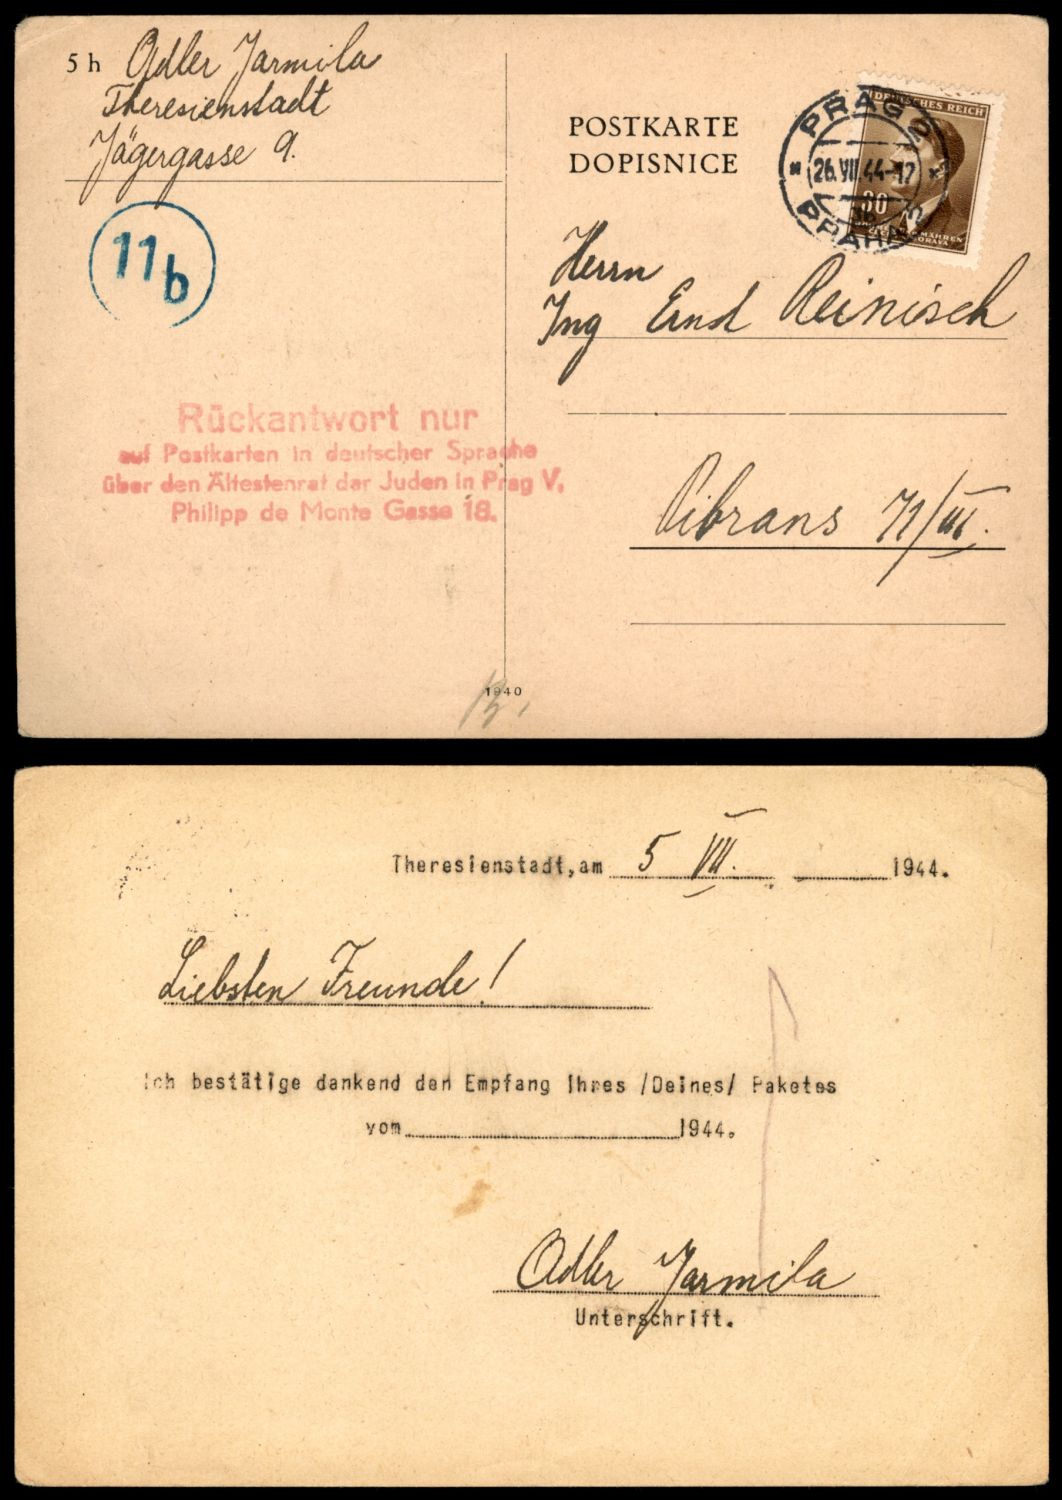 5 h Adler Jarmila
Theresienstadt
Jägergasse 9.
11b
Rückantwort nur
auf Postkarten in deutscher Sprache
über den Ältestenrat der Juden in Prag V,
Philipp de Monte Gasse 18.
POSTKARTE
DOPISNICE
DEUTSCHES REICH
PRAG
26.VII.44-12
PRAHA
30
Herrn
Ing Ernst Reinisch
Pibrans 71/III.
1940
Theresienstadt, am 5 VII. 1944.
Liebsten Freunde!
Ich bestätige dankend den Empfang Ihres /Deines/ Paketes
vom 1944.
Adler Jarmila
Unterschrift.